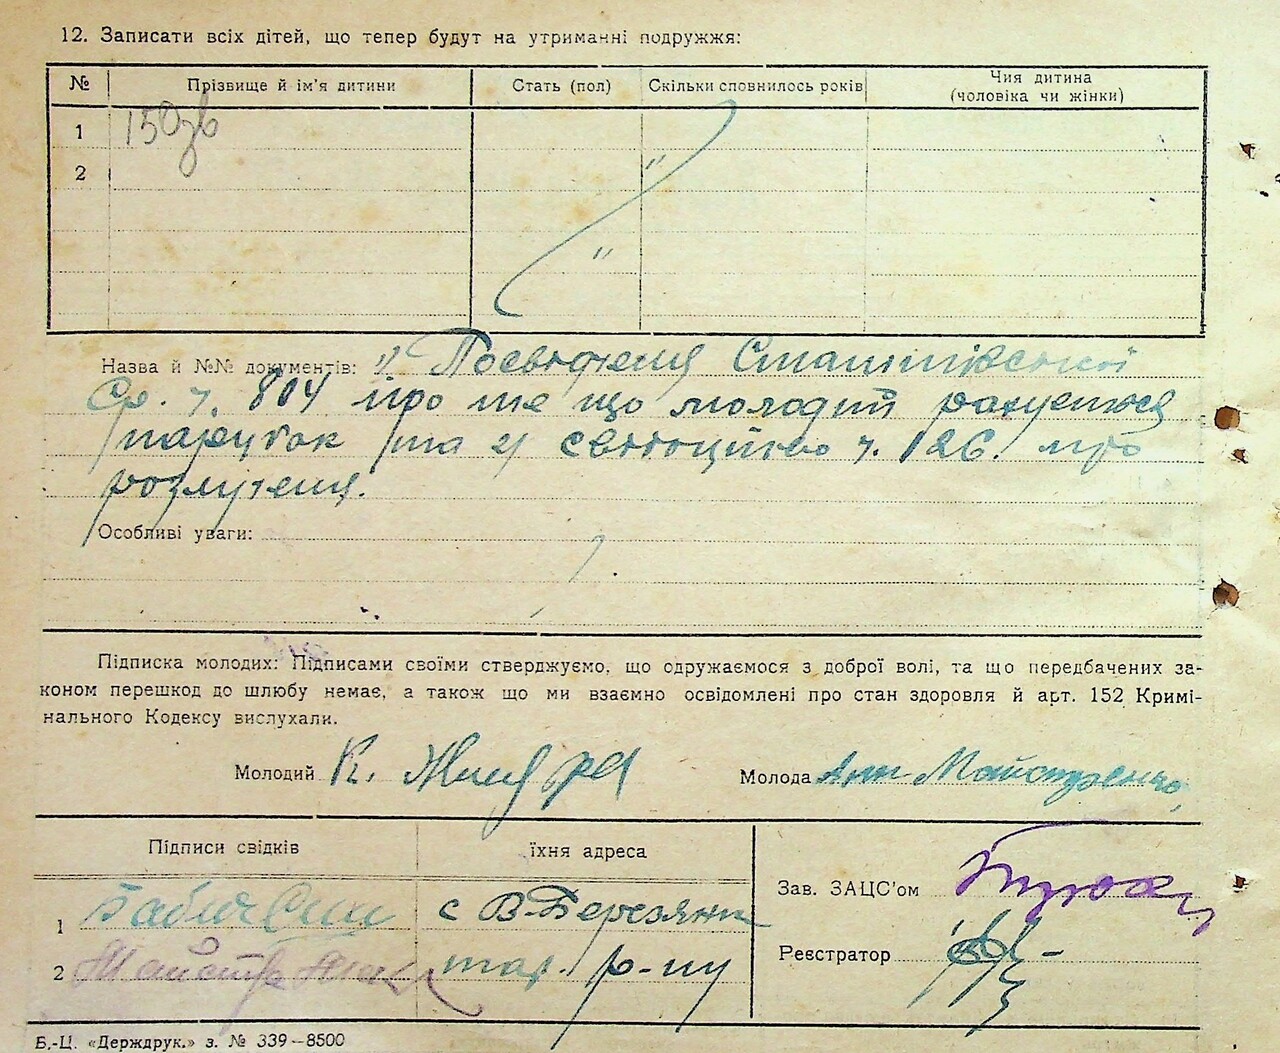 12. Записати всіх дітей, що тепер будуть на утриманні подружжя:
№ Прізвище й ім'я дитини Стать (пол) Скільки сповнилось років Чия дитина (чоловіка чи жінки)
1 150зв
2 "
"
Назва й №№ документів: 1)
Ср. ч. 804 про те що молодий рахується
парубок та 2) ч. 126. про
розлученя.
Особливі уваги:
Підписка молодих: Підписами своїми стверджуємо, що одружаємося з доброї волі, та що передбачених за-
коном перешкод до шлюбу немає, а також що ми взаємно освідомлені про стан здоровля й арт. 152 Кримі-
нального Кодексу вислухали.
Молодий К. Молода
Підписи свідків їхня адреса
Зав. ЗАЦС'ом
1 с В-Березянка
Реєстратор
2 тар. р-ну
Б.-Ц. «Держдрук.» з. № 339—8500